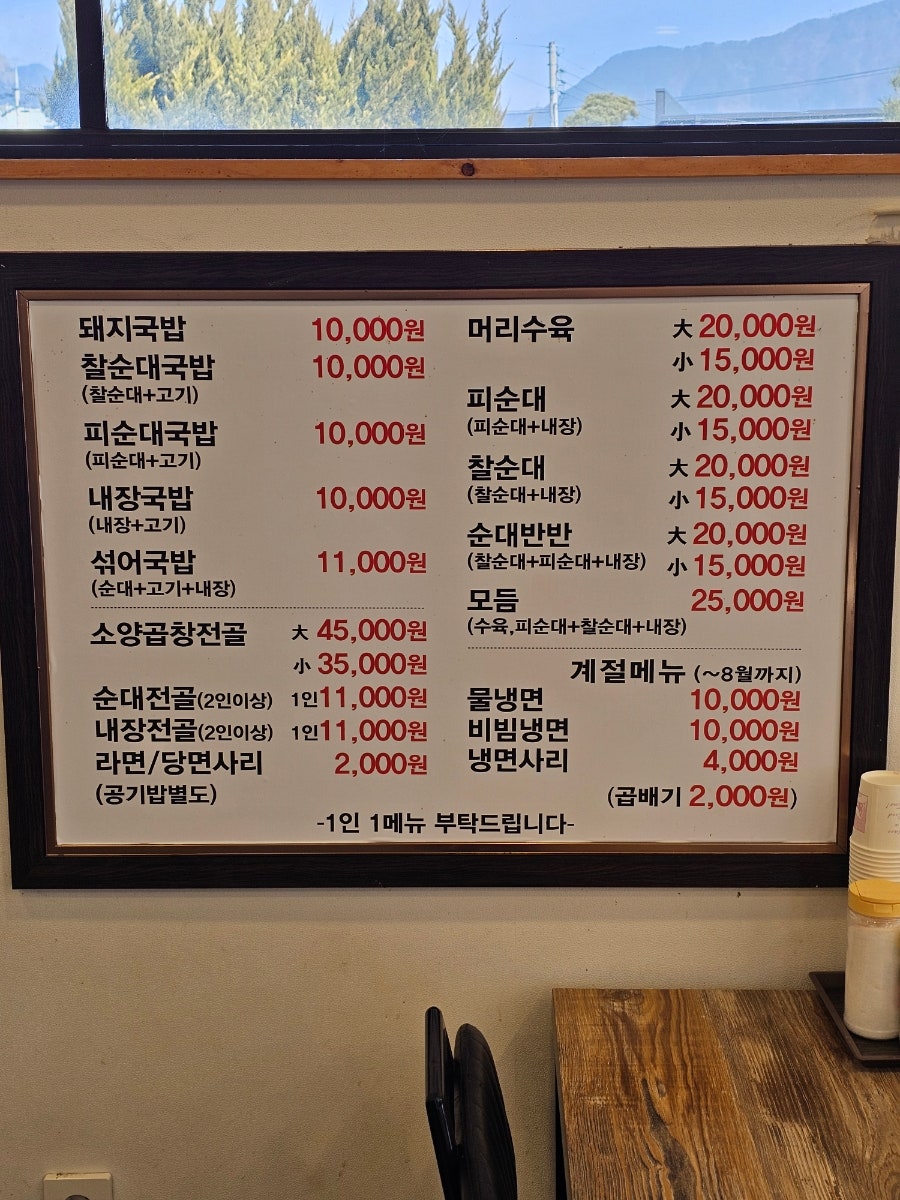 돼지국밥 10,000원
찰순대국밥 10,000원
(찰순대+고기)
피순대국밥 10,000원
(피순대+고기)
내장국밥 10,000원
(내장+고기)
섞어국밥 11,000원
(순대+고기+내장)
소양곱창전골 大 45,000원
小 35,000원
순대전골(2인이상) 1인11,000원
내장전골(2인이상) 1인11,000원
라면/당면사리 2,000원
(공기밥별도)
머리수육 大 20,000원
小 15,000원
피순대 大 20,000원
(피순대+내장) 小 15,000원
찰순대 大 20,000원
(찰순대+내장) 小 15,000원
순대반반 大 20,000원
(찰순대+피순대+내장) 小 15,000원
모듬 25,000원
(수육,피순대+찰순대+내장)
계절메뉴 (~8월까지)
물냉면 10,000원
비빔냉면 10,000원
냉면사리 4,000원
(곱배기 2,000원)
-1인 1메뉴 부탁드립니다-